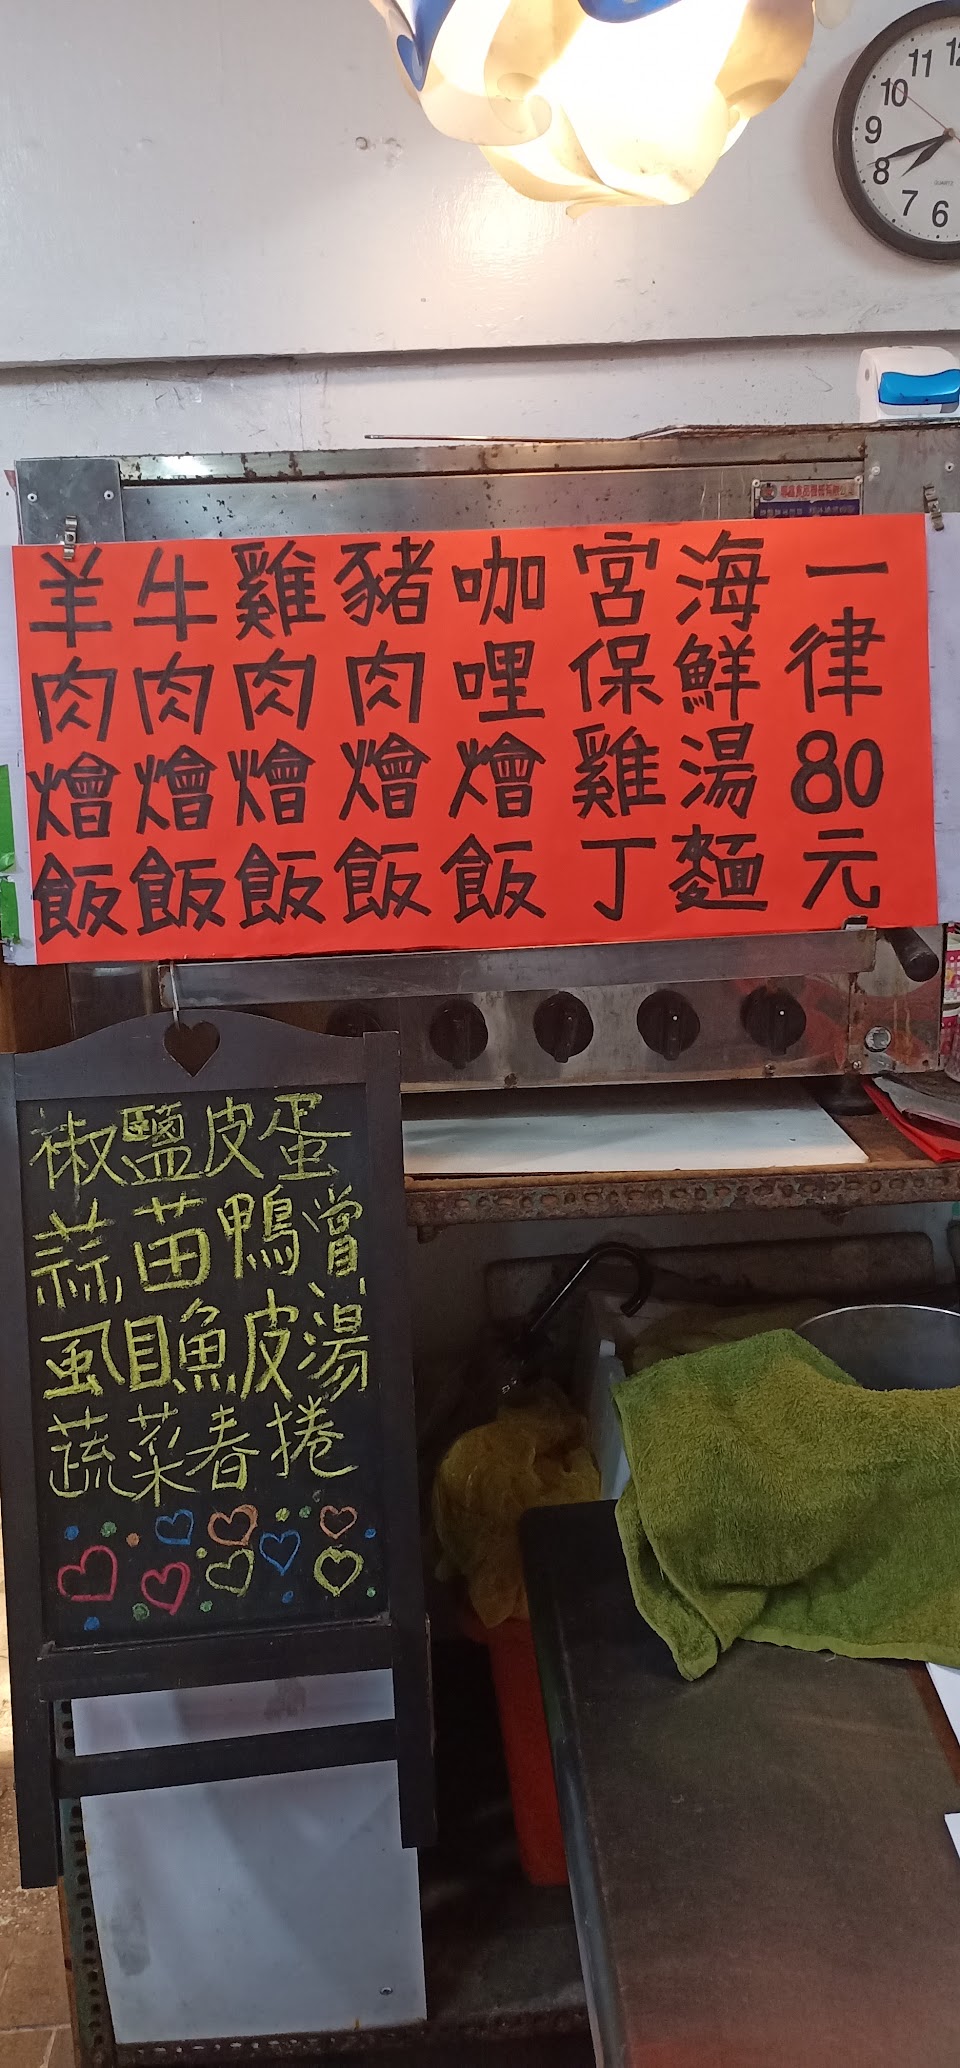 11
10
9
8
7
6
QUARTZ
一律80元
海鮮湯麵
宮保雞丁
咖哩燴飯
豬肉燴飯
雞肉燴飯
牛肉燴飯
羊肉燴飯
椒鹽皮蛋
蒜苗鴨賞
虱目魚皮湯
蔬菜春捲